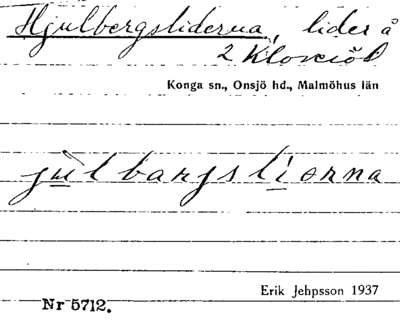 Hjulbergsliderna, lider å
2 Kloveröd
Konga sn., Onsjö hd., Malmöhus län
julbargsliorna
Erik Jehpsson 1937
Nr 5712.